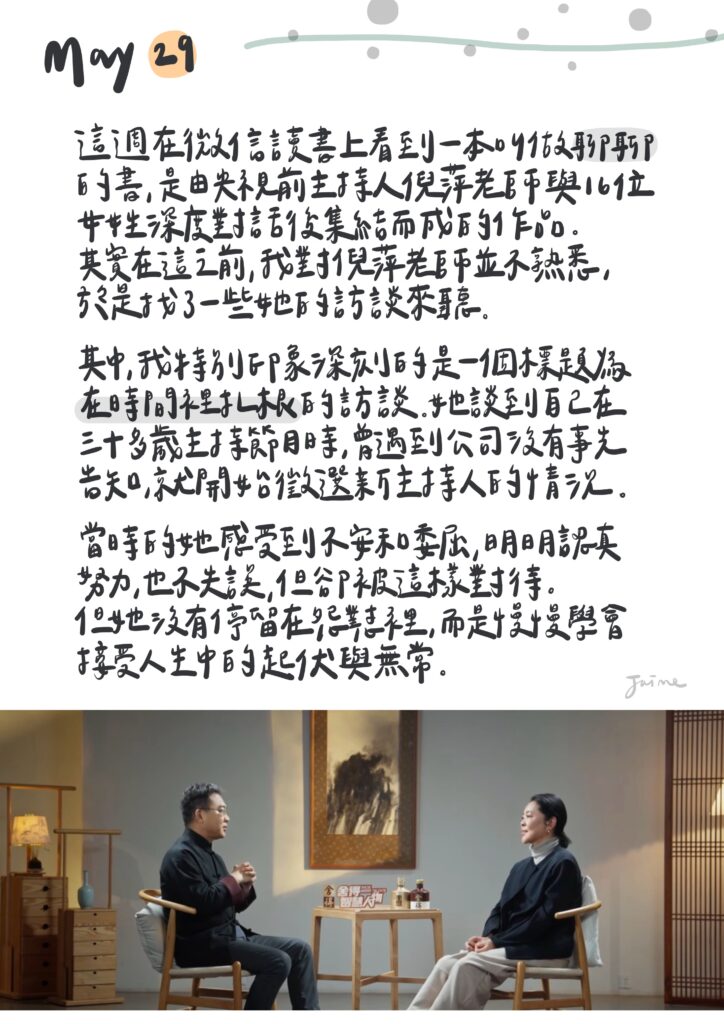 May 29
這週在微信讀書上看到一本叫做聊聊
的書,是由央視前主持人倪萍老師與16位
女性深度對話後集結而成的作品。
其實在這之前,我對倪萍老師並不熟悉,
於是找了一些她的訪談來聽。
其中,我特別印象深刻的是一個標題為
在時間裡扎根的訪談.她談到自己在
三十多歲主持節目時,曾遇到公司沒有事先
告知,就開始徵選新主持人的情況.
當時的她感受到不安和委屈,明明認真
努力,也不失誤,但卻被這樣對待。
但她沒有停留在怨懟裡,而是慢慢學會
接受人生中的起伏與無常.
Jaime
舍得
舍得
智慧人物